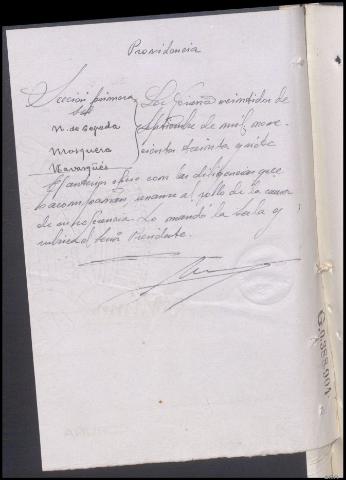 Providencia
Sección primera
N. de Cepeda
Mosquera
Navargüés
La Coruña veintidos de
Septiembre de mil nove-
cientos treinta y siete
El anterior oficio con las diligencias que
le acompañan, unanse al rollo de la causa
de su referencia. Lo mandó la Sala y
rubrica el Señor Presidente.
G.0388.904